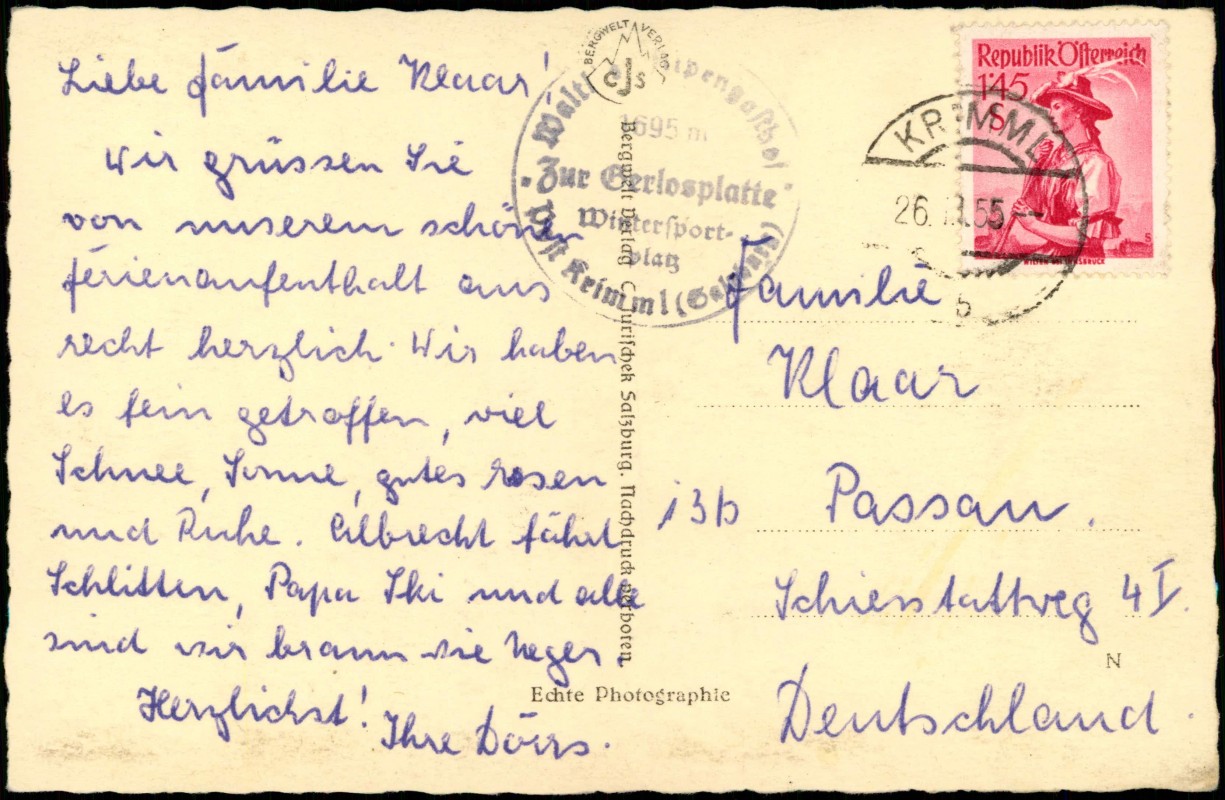 Liebe Familie Klaar!
Wir grüssen Sie
von unserem schönen
Ferienaufenthalt aus
recht herzlich. Wir haben
es fein getroffen, viel
Schnee, Sonne, gutes Essen
und Ruhe. Albrecht fährt
Schlitten, Papa Ski und alle
sind wir braun wie Neger.
Herzlichst!
Ihre Dörrs.
BERGWELT VERLAG
CJS
Alpengasthof
1695 m
"Zur Gerlosplatte"
Wintersport-
platz
Post Krimml (Salzburg)
Bergwelt Verlag C. Jurischek Salzburg. Nachdruck verboten.
Echte Photographie
Republik Österreich
1'45
S
KRIMML
26. 55
b
Familie
Klaar
13b Passau.
Schiesstattweg 4 I.
N
Deutschland.